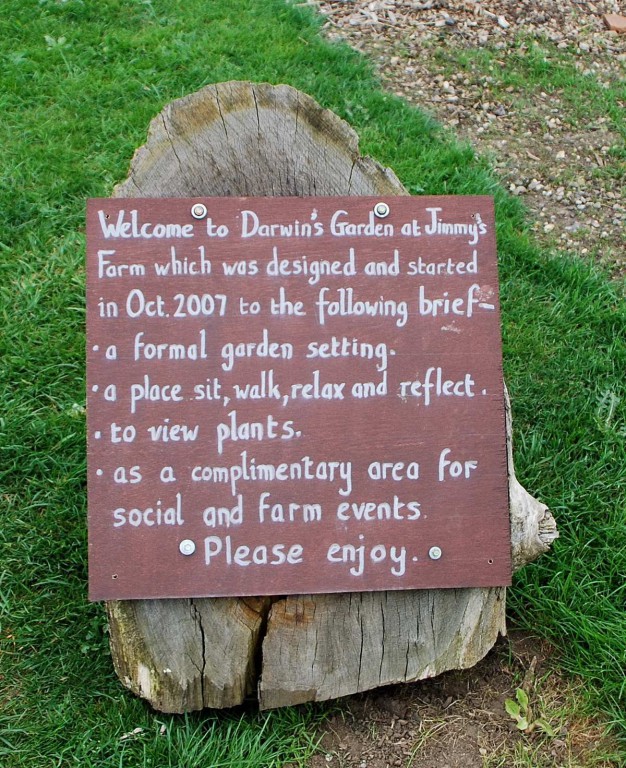 Welcome to Darwin's Garden at Jimmy's
Farm which was designed and started
in Oct. 2007 to the following brief-
• a formal garden setting.
• a place sit, walk, relax and reflect.
• to view plants.
• as a complimentary area for
social and farm events.
Please enjoy.